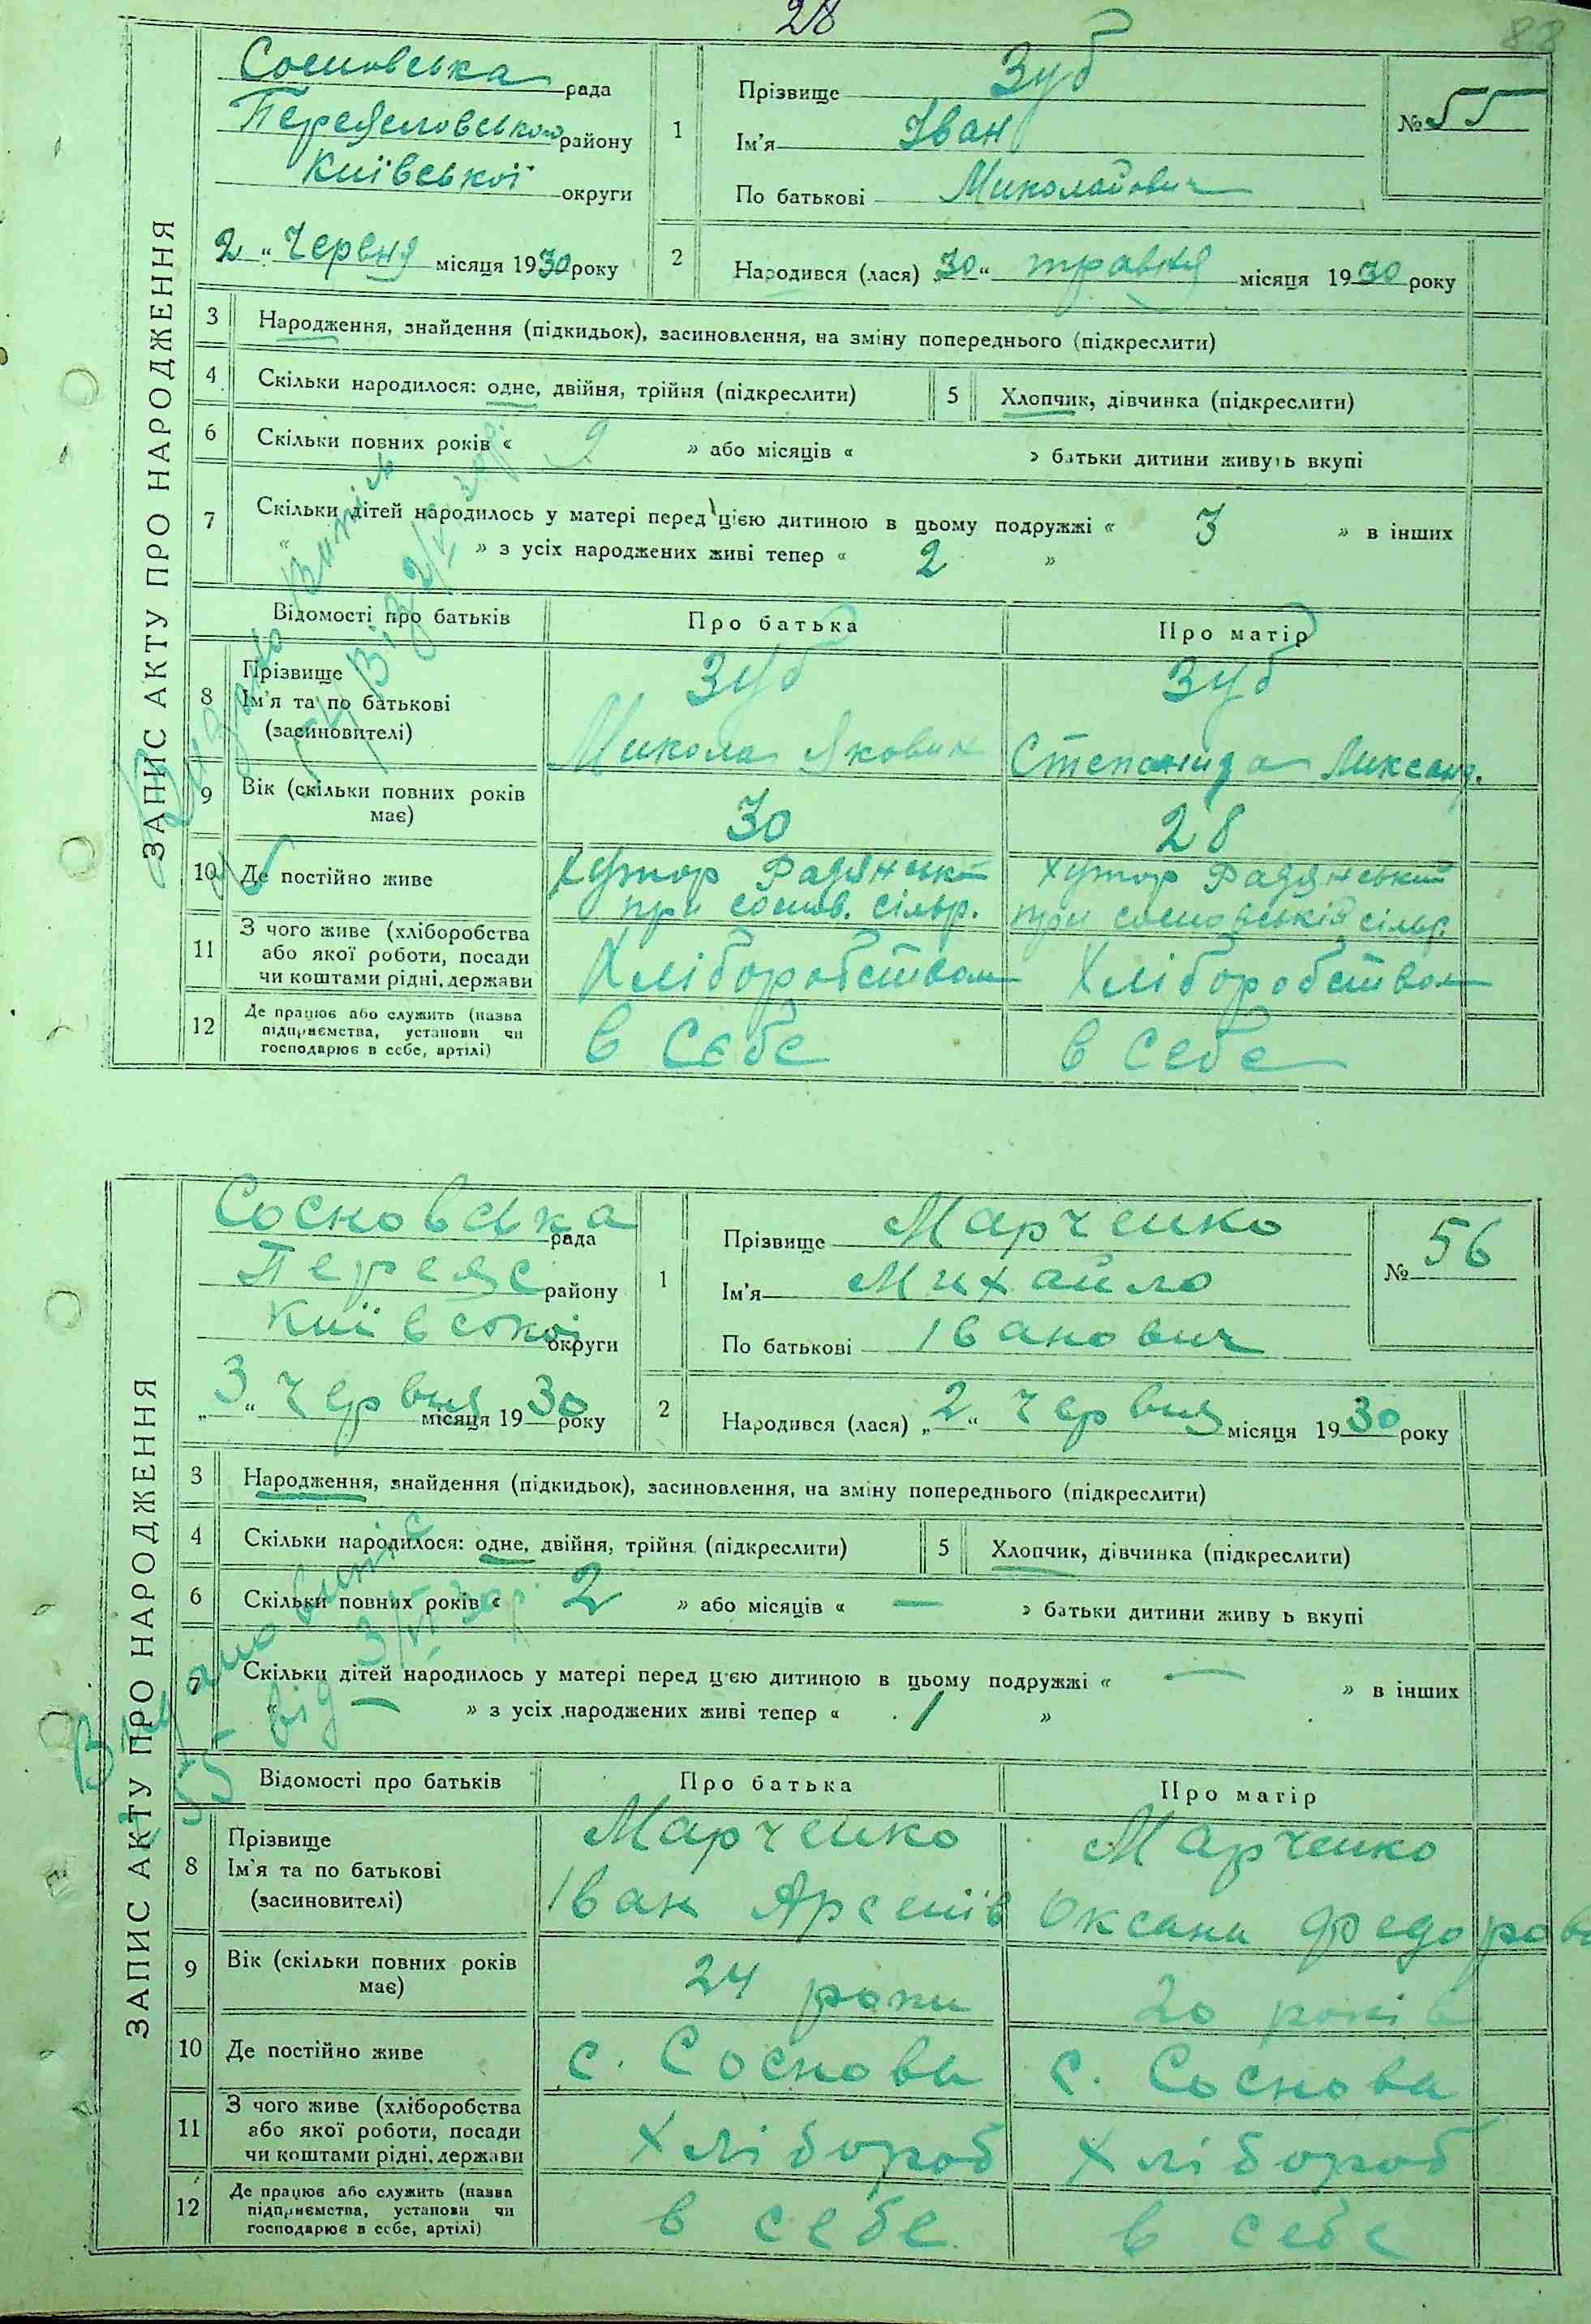 28
88
ЗАПИС АКТУ ПРО НАРОДЖЕННЯ
Сосновська рада
Переяславського району
Київської округи
2 “ Червня місяця 1930 року
1
Прізвище Зуб
Ім'я Іван
По батькові Миколайович
№ 55
2
Народився (лася) „30“ травня місяця 1930 року
3 Народження, знайдення (підкидьок), засиновлення, на зміну попереднього (підкреслити)
4 Скільки народилося: одне, двійня, трійня (підкреслити)
5 Хлопчик, дівчинка (підкреслити)
6 Скільки повних років « 9 » або місяців « » батьки дитини живуть вкупі
7 Скільки дітей народилось у матері перед цією дитиною в цьому подружжі « 3 » в інших
« » з усіх народжених живі тепер « 2 »
Відомості про батьків Про батька Про матір
8 Прізвище
Ім'я та по батькові
(засиновителі)
Зуб
Микола Якович
Зуб
Степанида Ликсанд.
9 Вік (скільки повних років має) 30 28
10 Де постійно живе
хутор Радянський
при соснов. сільр.
хутор Радянський
при сосновській сільр.
11 З чого живе (хліборобства
або якої роботи, посади
чи коштами рідні, держави
Хліборобством Хліборобством
12 Де працює або служить (назва
підприємства, установи чи
господарює в себе, артілі)
в себе в себе
Видано витяг
від 2/VI 30р.
ЗАПИС АКТУ ПРО НАРОДЖЕННЯ
Сосновська рада
Переяс району
Київської округи
„3“ червня місяця 1930 року
1
Прізвище Марченко
Ім'я Михайло
По батькові Іванович
№ 56
2
Народився (лася) „2“ червня місяця 1930 року
3 Народження, знайдення (підкидьок), засиновлення, на зміну попереднього (підкреслити)
4 Скільки народилося: одне, двійня, трійня (підкреслити)
5 Хлопчик, дівчинка (підкреслити)
6 Скільки повних років « 2 » або місяців « — » батьки дитини живу ь вкупі
7 Скільки дітей народилось у матері перед цією дитиною в цьому подружжі « — » в інших
« — » з усіх народжених живі тепер « 1 »
Відомості про батьків Про батька Про матір
8 Прізвище
Ім'я та по батькові
(засиновителі)
Марченко
Іван Арсеніїв
Марченко
Оксана Федоров
9 Вік (скільки повних років має) 24 роки 20 років
10 Де постійно живе с. Соснова с. Соснова
11 З чого живе (хліборобства
або якої роботи, посади
чи коштами рідні, держави
Хлібороб Хлібороб
12 Де працює або служить (назва
підприємства, установи чи
господарює в себе, артілі)
в себе в себе
Видано витяг
55 від 3/VI 30р.